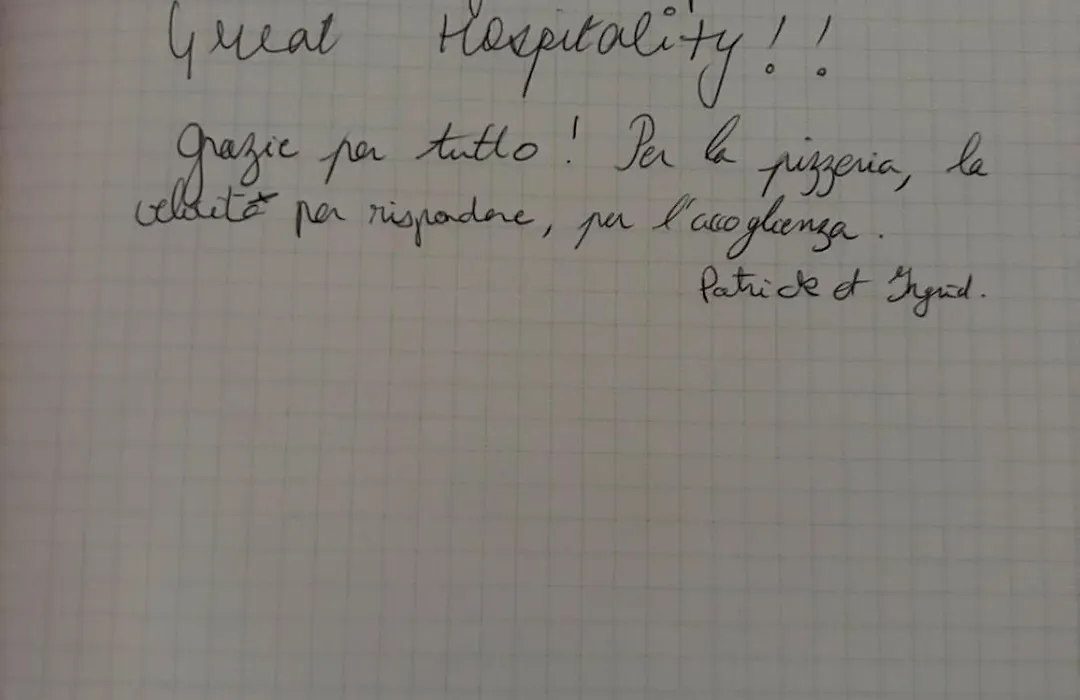 Great Hospitality!!
Grazie per tutto! Per la pizzeria, la
velocità per rispondere, per l'accoglienza.
Patrick et Ingrid.